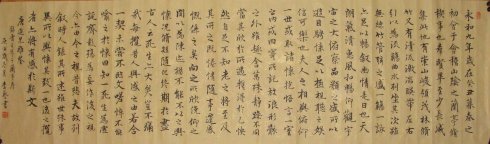 永和九年歲在癸丑暮春之
初會于會稽山陰之蘭亭脩
禊事也群賢畢至少長咸
集此地有崇山峻領茂林脩
竹又有清流激湍映帶左右
引以為流觴曲水列坐其次
雖無絲竹管弦之盛一觴一詠
亦足以暢敘幽情是日也天
朗氣清惠風和暢仰觀宇
宙之大俯察品類之盛所以
遊目騁懷足以極視聽之娛
信可樂也夫人之相與俯仰
一世或取諸懷抱悟言一室
之內或因寄所託放浪形骸
之外雖趣舍萬殊靜躁不同
當其欣於所遇暫得於己快
然自足不知老之將至及其
所之既惓情隨事遷感
慨係之矣向之所欣俛仰之
間以為陳迹猶不能不以之興
懷況脩短隨化終期於盡
古人云死生亦大矣豈不痛
哉每攬昔人興感之由若合
一契未嘗不臨文嗟悼不能
喻之於懷固知一死生為虛
誕齊彭殤為妄作後之視
今亦由今之視昔悲夫故列
敘時人錄其所述雖世殊事
異所以興懷其致一也後之攬
者亦將有感於斯文